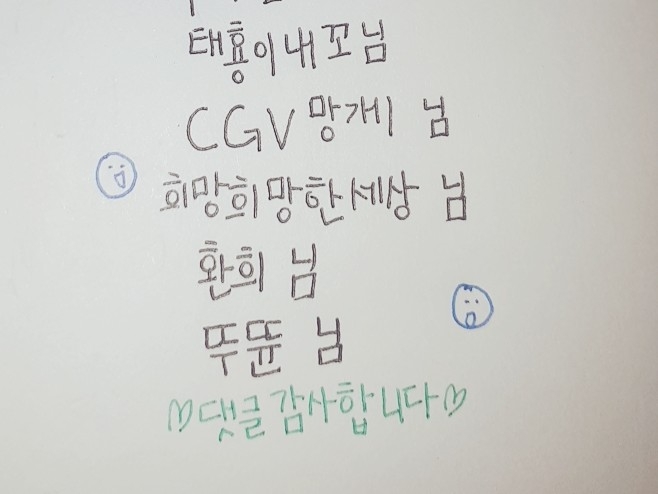 태용이내꼬님
CGV망개 님
희망희망한세상 님
환희 님
뚜뚠 님
♡댓글감사합니다♡